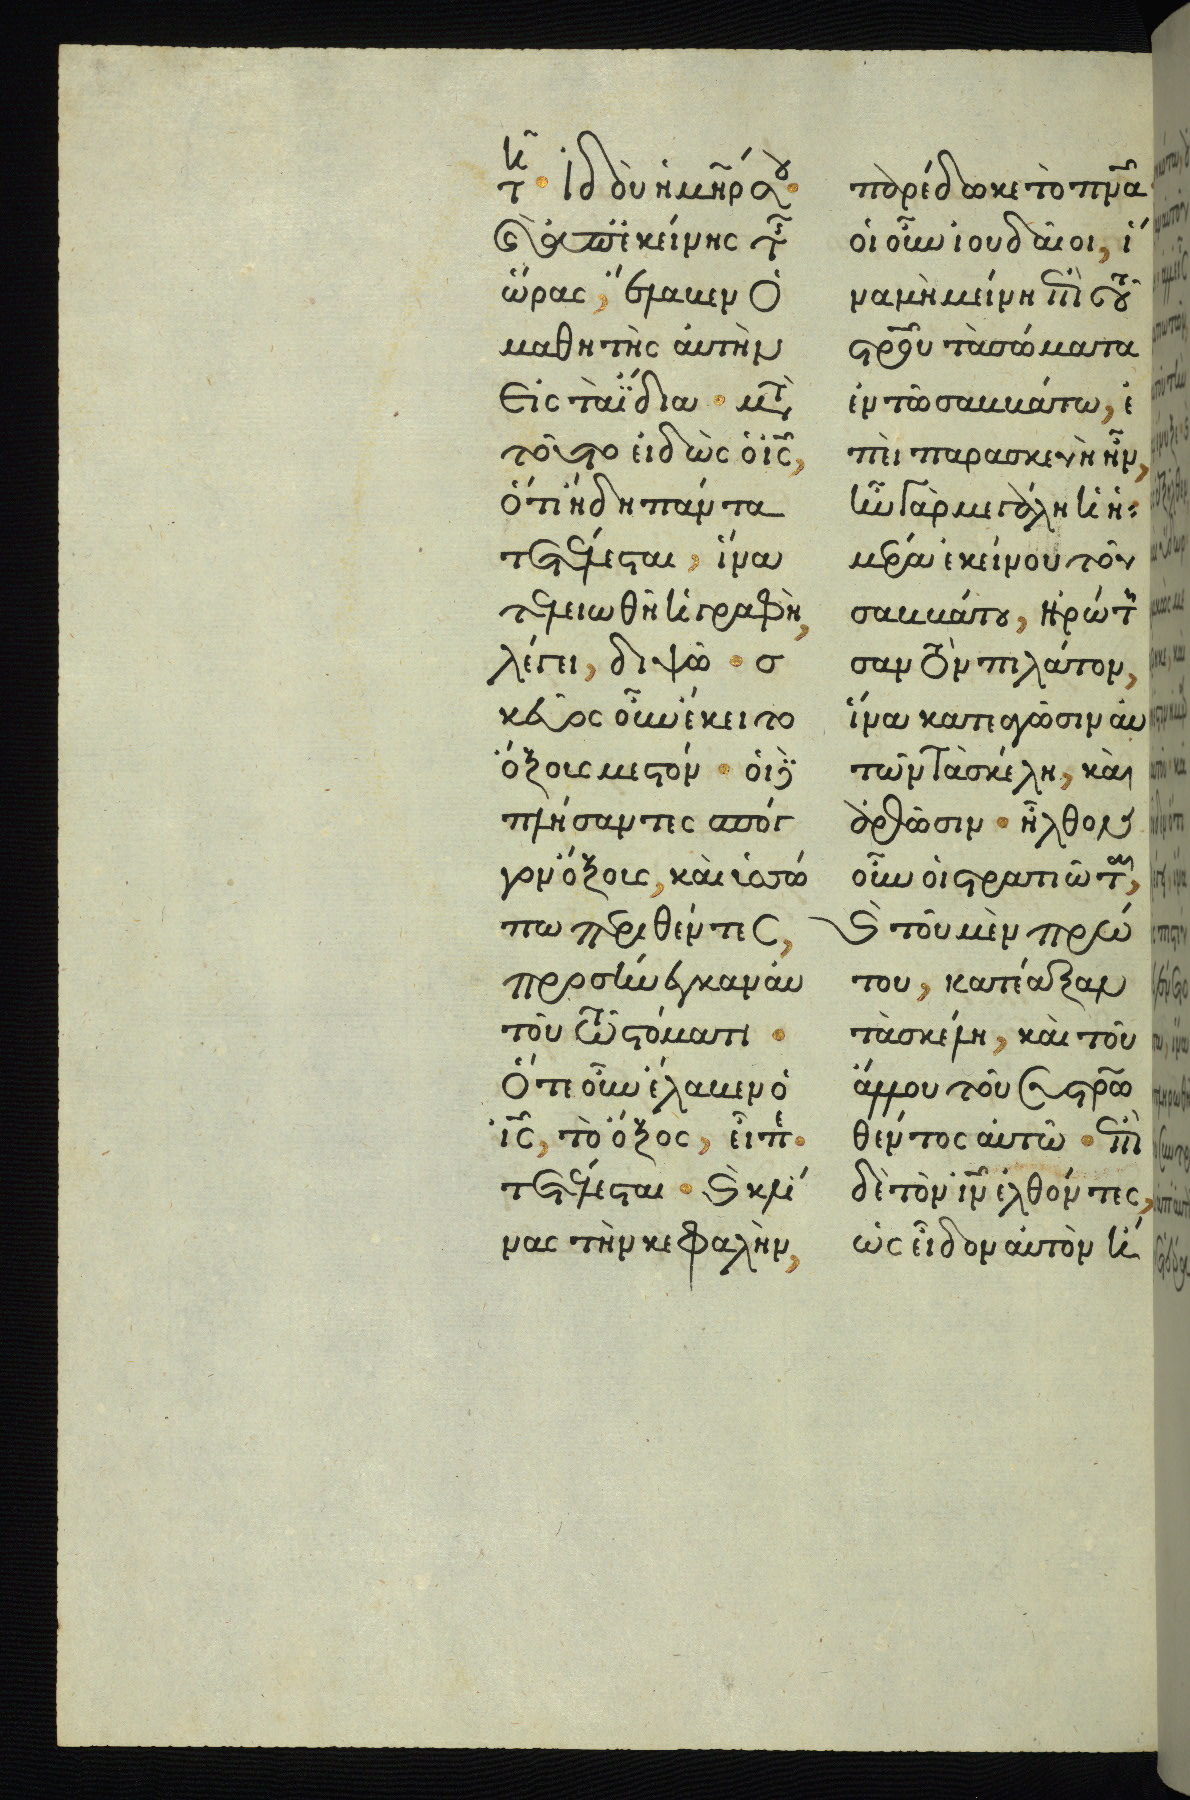 τῆ· ἰδοὺ ἡ μῆρ σου·
καὶ ἀπ' ἐκείνης τῆς
ὥρας, ἔλαβεν ὁ
μαθητὴς αὐτὴν
εἰς τὰ ἴδια· μετὰ
τοῦτο εἰδὼς ὁ ἰς̅,
ὅτι ἤδη πάντα
τετέλεσται, ἵνα
τελειωθῆ ἡ γραφὴ,
λέγει, διψῶ· σ
κεῦος οὖν ἔκειτο
ὄξους μεστόν· οἱ δὲ
πλήσαντες σπόγ
γον ὄξους, καὶ ὑσσώ
πω περιθέντες,
προσήνεγκαν αὐ
τοῦ τῶ στόματι·
Ὅτε οὖν ἔλαβεν ὁ
ἰς̅, τὸ ὄξος, εἶπε·
τετέλεσται· καὶ κλί
νας τὴν κεφαλὴν,
παρέδωκε τὸ πνα̅
οἱ οὖν ἰουδαῖοι, ἵ
να μὴ μείνη ἐπὶ τοῦ
στρου̅ τὰ σώματα
ἐν τῶ σαββάτω, ἐ
πεὶ παρασκευὴ ἦν,
ἦν γὰρ μεγάλη ἡ ἡ
μέρα ἐκείνου τοῦ
σαββάτου, ἠρώτη
σαν τὸν πιλάτον,
ἵνα κατεαγῶσιν αὐ
τῶν τὰ σκέλη, καὶ
ἀρθῶσιν· ἦλθον
οὖν οἱ στρατιῶται,
καὶ τοῦ μὲν πρώ
του, κατέαξαν
τὰ σκέλη, καὶ τοῦ
ἄλλου τοῦ συστρω̅
θέντος αὐτῶ· ἐπὶ
δὲ τὸν ἰν̅ ἐλθόντες,
ὡς εἶδον αὐτὸν ἤ